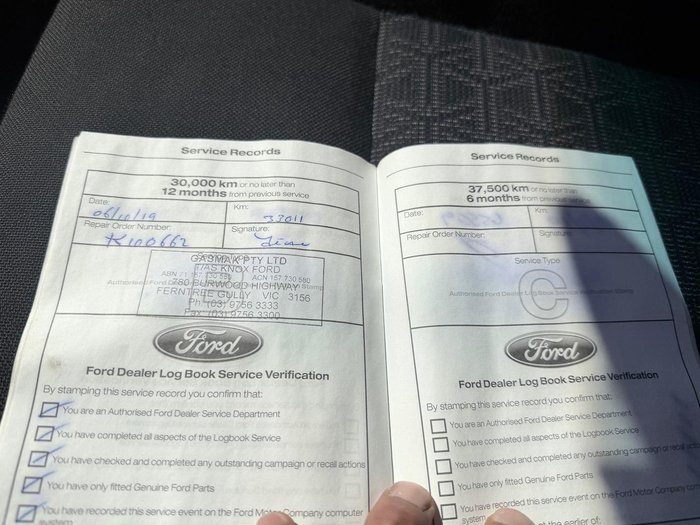 Service Records
30,000 km or no later than
12 months from previous service
Date: 06/10/19
Km: 33011
Repair Order Number: K100662
Signature:
GASMAK PTY LTD
T/AS KNOX FORD
ABN 71 157 730 580 ACN 157 730 580
Authorised Ford Stamp
780 BURWOOD HIGHWAY
FERNTREE GULLY VIC 3156
Ph (03) 9756 3333
Fax (03) 9756 3300
Ford
Ford Dealer Log Book Service Verification
By stamping this service record you confirm that:
You are an Authorised Ford Dealer Service Department
You have completed all aspects of the Logbook Service
You have checked and completed any outstanding campaign or recall actions
You have only fitted Genuine Ford Parts
You have recorded this service event on the Ford Motor Company computer
system
Service Records
37,500 km or no later than
6 months from previous service
Date:
Km:
Repair Order Number:
Signature
Service Type
C
Authorised Ford Dealer Log Book Service Verification Stamp
Ford
Ford Dealer Log Book Service Verification
By stamping this service record you confirm that:
You are an Authorised Ford Dealer Service Department
You have completed all aspects of the Logbook Service
You have checked and completed any outstanding campaign or recall
You have only fitted Genuine Ford Parts
You have recorded this service event on the Ford Motor Company
system
at the earlier of: